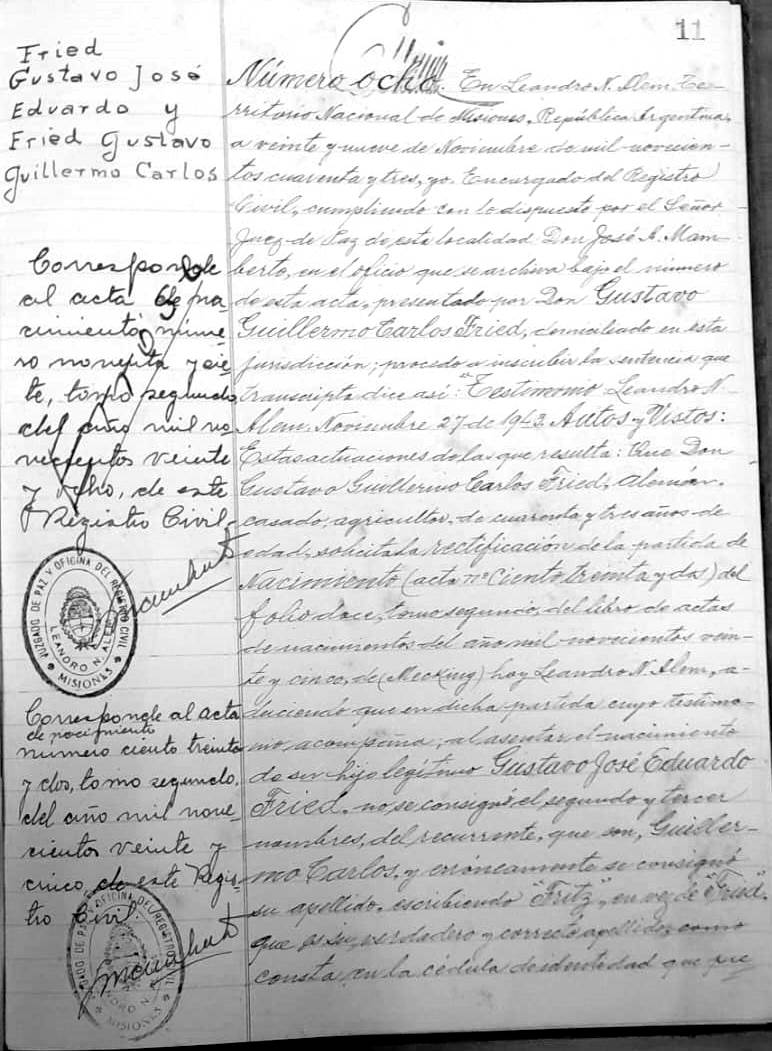 11
Fried
Gustavo José
Eduardo y
Fried Gustavo
Guillermo Carlos
Corresponde
al acta de na-
cimiento núme-
ro noventa y sie-
te, tomo segundo
del año mil no-
vecientos veinte
y ocho, de este
Registro Civil.
JUZGADO DE PAZ Y OFICINA DEL REGISTRO CIVIL
LEANDRO N. ALEM
MISIONES
Corresponde al acta
de nacimiento
número ciento treinta
y dos, tomo segundo,
del año mil nove
cientos veinte y
cinco, de este Regis-
tro Civil.
JUZGADO DE PAZ Y OFICINA DEL REGISTRO CIVIL
LEANDRO N. ALEM
MISIONES
Número Ocho. En Leandro N. Alem, Te-
rritorio Nacional de Misiones, República Argentina,
a veinte y nueve de Noviembre de mil novecien-
tos cuarenta y tres, yo, Encargado del Registro
Civil, cumpliendo con lo dispuesto por el Señor
Juez de Paz de esta localidad Don José A. Mam-
berto, en el oficio que se archiva bajo el número
de esta acta, presentado por Don Gustavo
Guillermo Carlos Fried, domiciliado en esta
jurisdicción; procedo a inscribir la sentencia que
transcripta dice así: "Testimonio Leandro N.
Alem, Noviembre 27 de 1943. Autos y Vistos:
Estas actuaciones de las que resulta: Que Don
Gustavo Guillermo Carlos Fried, Alemán,
casado, agricultor, de cuarenta y tres años de
edad, solicita la rectificación de la partida de
Nacimiento (acta nº Ciento treinta y dos) del
folio doce, tomo segundo, del libro de actas
de nacimientos del año mil novecientos vein-
te y cinco, de (Mecking) hoy Leandro N. Alem, a-
duciendo que en dicha partida cuyo testimo-
nio acompaña, al asentar el nacimiento
de su hijo legítimo Gustavo José Eduardo
Fried, no se consignó el segundo y tercer
nombres, del recurrente, que son, Guiller-
mo Carlos, y erróneamente se consignó
su apellido, escribiendo "Fritz", en vez de "Fried",
que es su verdadero y correcto apellido, como
consta en la cédula de identidad que pre